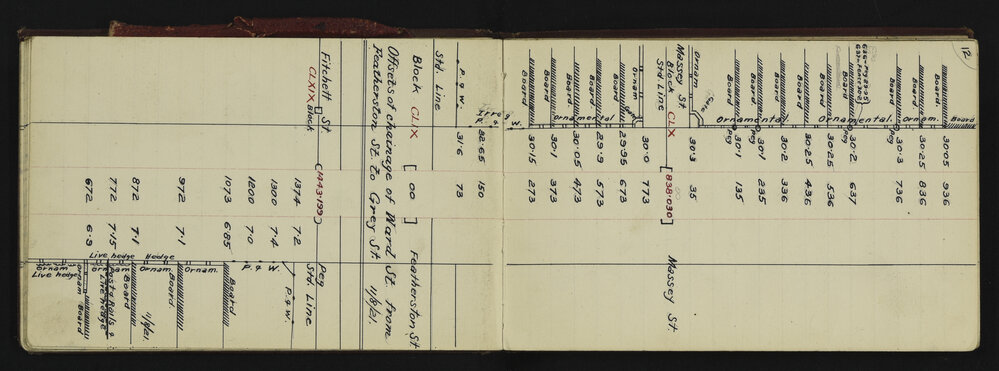 12
Board
30·05 936
Board.
Ornam.
30·25 836
Board
30·3 736
Peg
Ornamental.
Board
30·2 637
30·25 536
Board
30·25 436
Board
30·2 336
Ornamental
Board
30·1 235
Peg
Board
30·1 135
Peg
Gate
Ornam
30·3 35
Massey St Massey St.
Block CLX [838·030]
Std. Line
30·0 773
Ornam
29·95 673
Board
29·9 573
Ornamental
Board.
30·05 473
Board
30·1 373
Board
30·15 273
Irreg P. & W.
32·65 150
P. & W.
31·6 73
Std. Line
Block CLIX [00] Featherston St
Offsets of chainage of Ward St. from
Featherston St. to Grey St. 11/8/21.
Fitchett St Peg
CLXIX Block [1443·199] Std. Line
1374 7·2
P. & W.
1300 7·4
1200 7·0
P. & W.
1073 6·85
Board
Ornam.
972 7·1
Board
Hedge
Ornam.
872 7·1
11/8/21.
Board
Live hedge
772 7·15
Posts Rails &
Live hedge
Ornam
672 6·9
Ornam
Board
Ornam
Live hedge